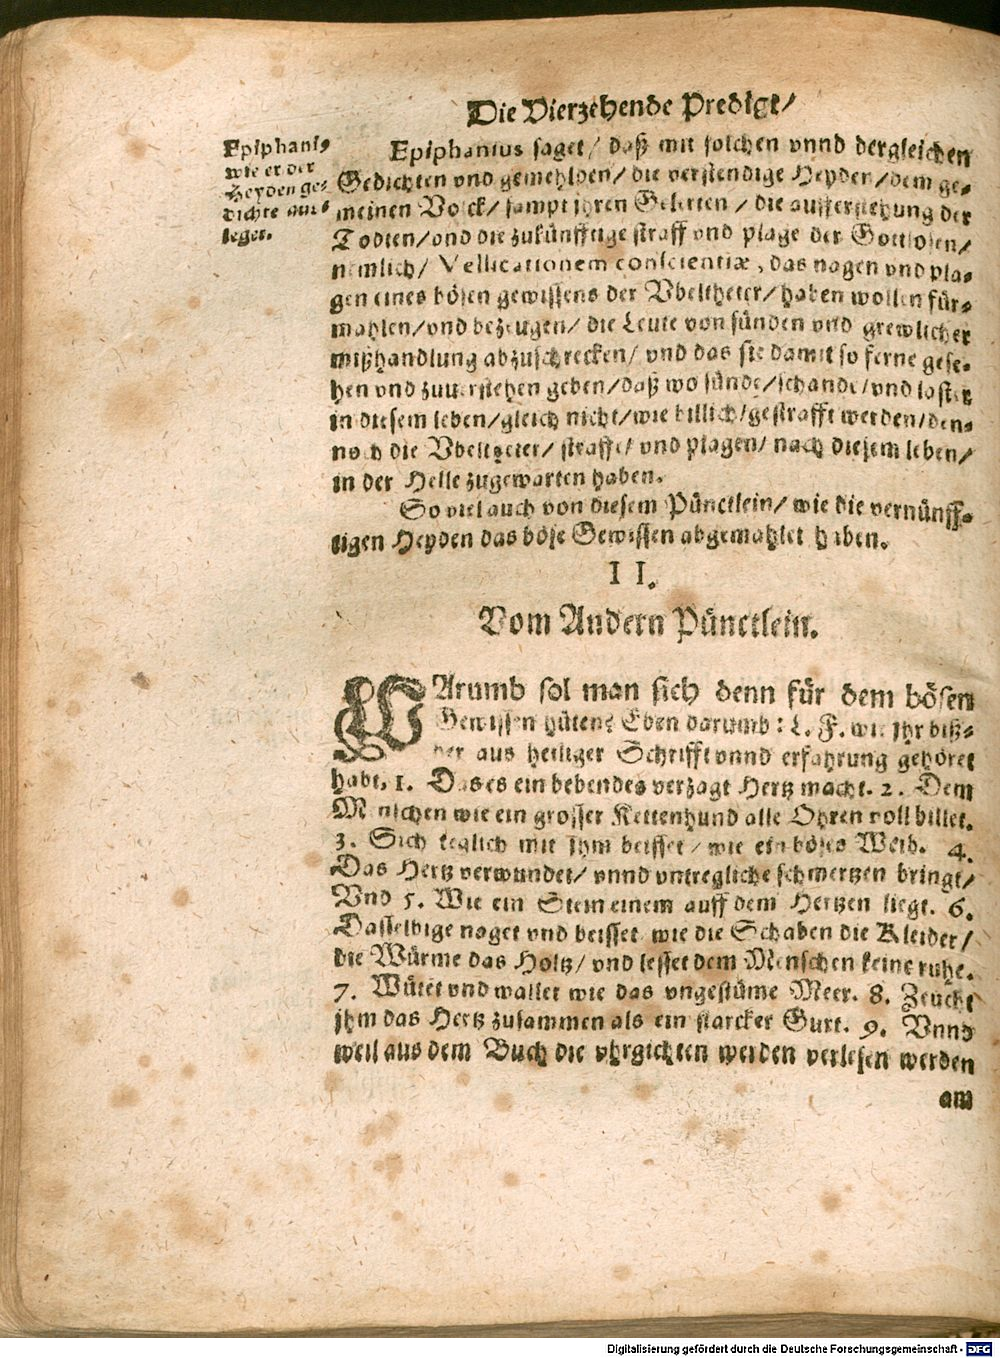 Die Vierzehende Predigt/
Epiphani⸗
wie er der
Heyden ge⸗
dichte aus⸗
leget.
Epiphanius saget/ daß mit solchen vnnd dergleichen
Gedichten vnd gemehlden/ die verstendige Heyden/ dem ge⸗
meinen Volck/ sampt jhren Gelerten/ die aufferstehung der
Todten/ vnd die zukünfftige straff vnd plage der Gottlosen/
nemlich/ Vellicationem conscientiæ, das nagen vnd pla⸗
gen eines bösen gewissens der Vbeltheter/ haben wollen für⸗
mahlen/ vnd bezeugen/ die Leute von sünden vnd grewlicher
mißhandlung abzuschrecken/ vnd das sie damit so ferne gese⸗
hen vnd zuuerstehen geben/ daß wo sünde/ schande/ vnd laster
in diesem leben/ gleich nicht/ wie billich/ gestrafft werden/ den⸗
noch die Vbeltheter/ straffe/ vnd plagen/ nach diesem leben/
in der Helle zugewarten haben.
So viel auch von diesem Pünctlein/ wie die vernünff⸗
tigen Heyden das böse Gewissen abgemahlet haben.
II.
Vom Andern Pünctlein.
WArumb sol man sich denn für dem bösen
Gewissen hüten? Eben darumb: L. F. wie jhr biß⸗
her aus heiliger Schrifft vnnd erfahrung gehöret
habt, 1. Das es ein bebendes verzagt Hertz macht. 2. Dem
Menschen wie ein grosser Kettenhund alle Ohren voll billet.
3. Sich teglich mit jhm beisset/ wie ein böses Weib. 4.
Das Hertz verwundet/ vnnd vntregliche schmertzen bringt/
Vnd 5. Wie ein Stein einem auff dem Hertzen liegt. 6.
Dasselbige naget vnd beisset wie die Schaben die Kleider/
die Würme das Holtz/ vnd lesset dem Menschen keine ruhe.
7. Wütet vnd wallet wie das vngestüme Meer. 8. Zeucht
jhm das Hertz zusammen als ein starcker Gurt. 9. Vnnd
weil aus dem Buch die vhrgichten werden verlesen werden
am
Digitalisierung gefördert durch die Deutsche Forschungsgemeinschaft - DFG